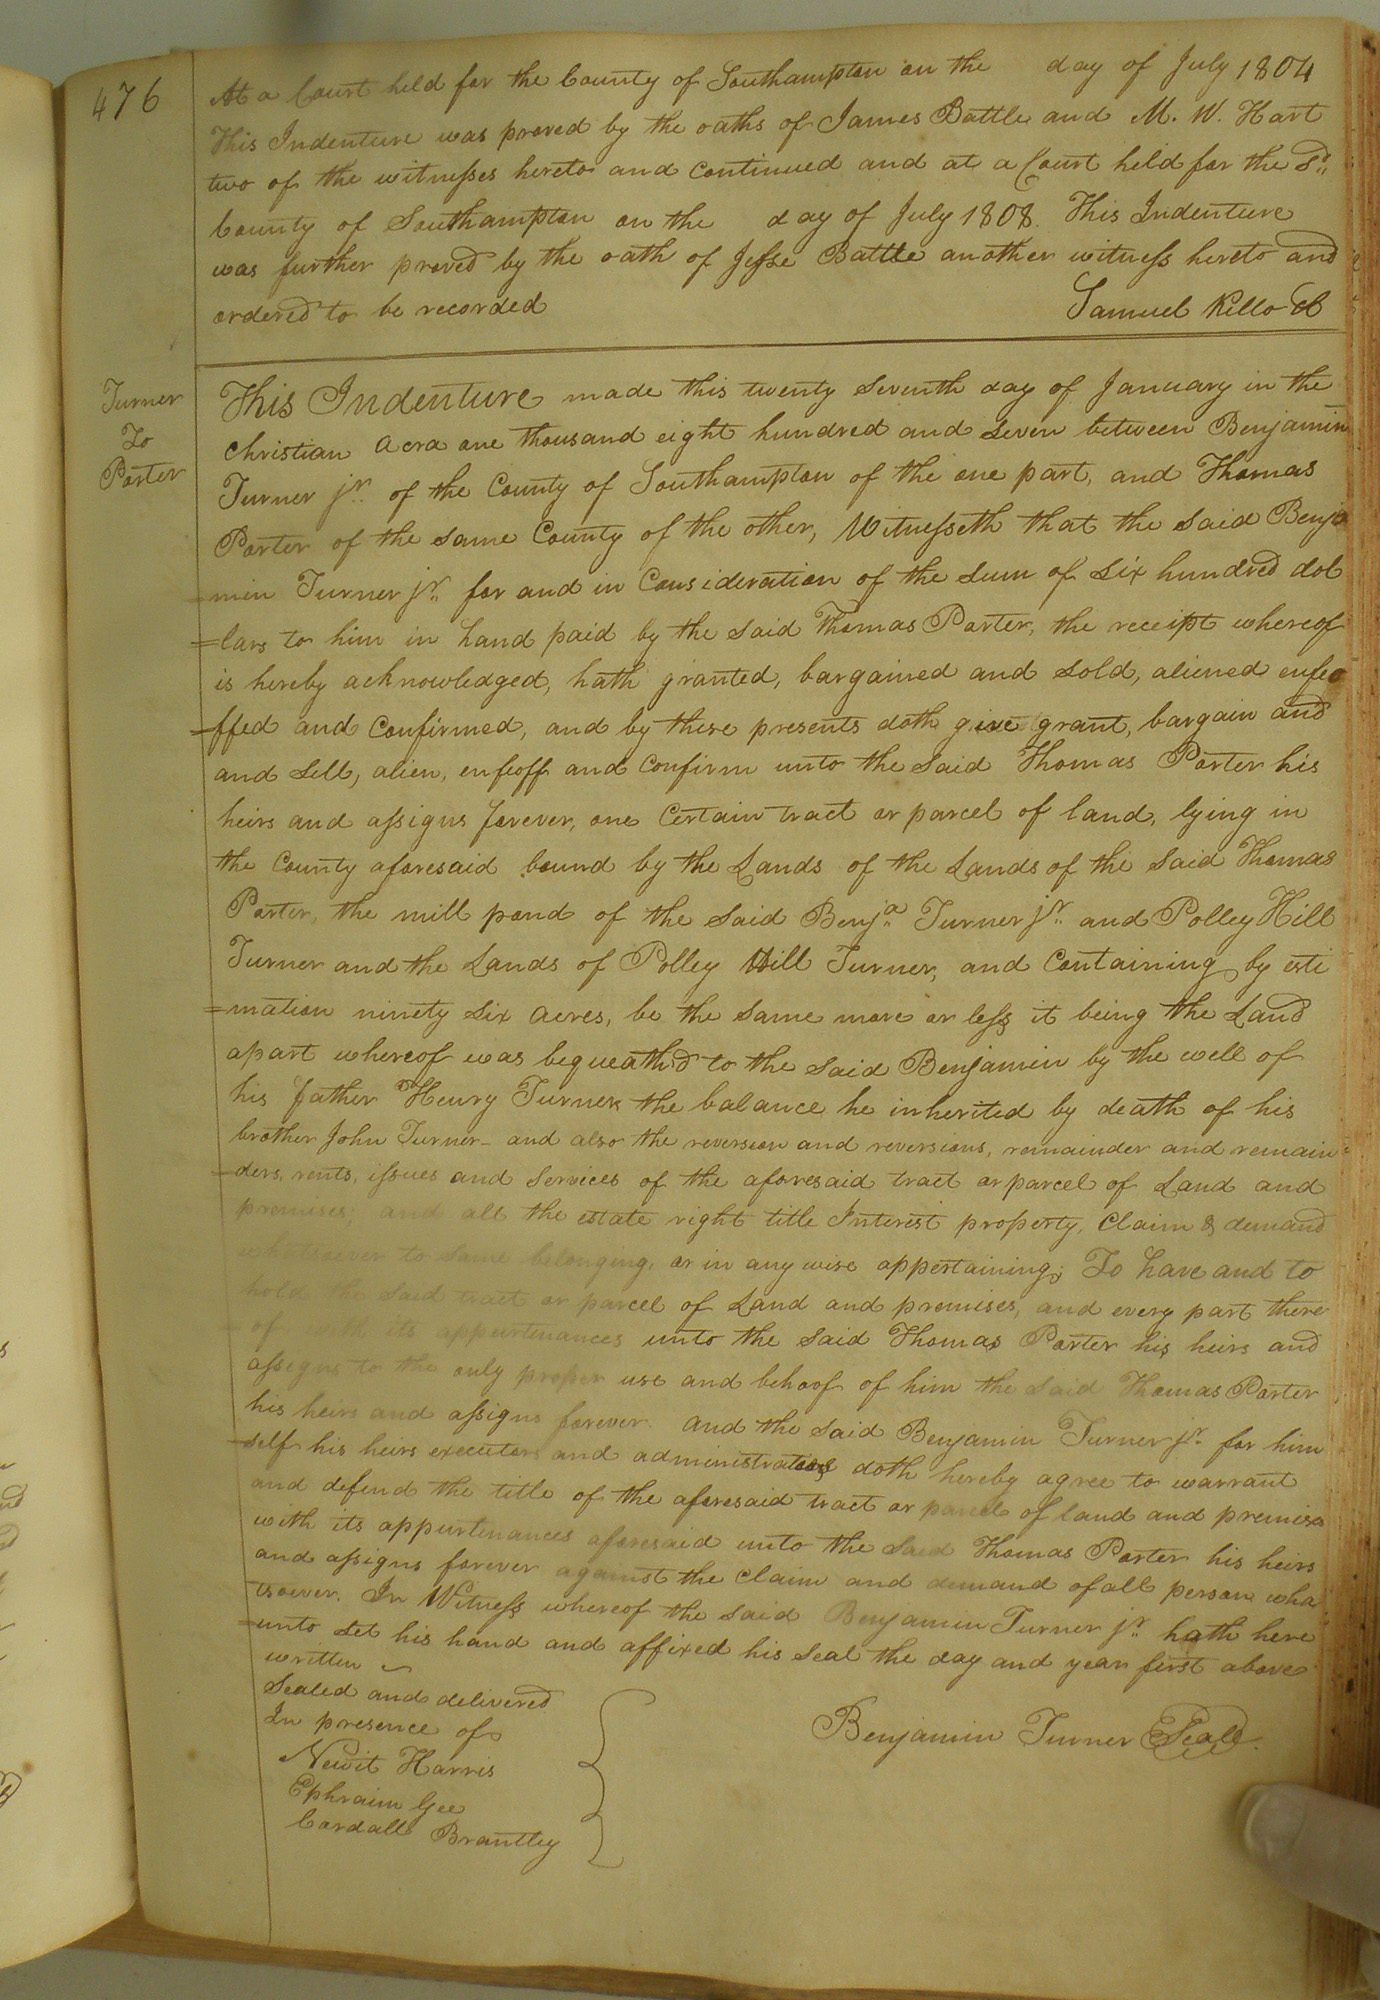 476
At a Court held for the County of Southampton on the day of July 1804
This Indenture was proved by the oaths of James Battle and M. W. Hart
two of the witnesses hereto and continued and at a Court held for the Sd.
County of Southampton on the day of July 1808. This Indenture
was further proved by the oath of Jesse Battle another witness hereto and
ordered to be recorded
Samuel Kello
Turner
To
Porter
This Indenture made this twenty seventh day of January in the
christian Aera one thousand eight hundred and seven between Benjamin
Turner jr. of the County of Southampton of the one part, and Thomas
Porter of the same County of the other, Witnesseth that the said Benja
=min Turner jr. for and in Consideration of the sum of six hundred dol
=lars to him in hand paid by the said Thomas Porter, the receipt whereof
is hereby acknowledged, hath granted, bargained and sold, aliened enfeo
=ffed and Confirmed, and by these presents doth give grant, bargain and
and sell, alien, enfeoff and confirm unto the said Thomas Porter his
heirs and assigns forever, one Certain tract or parcel of land, lying in
the County aforesaid bound by the Lands of the Lands of the said Thomas
Porter, the mill pond of the said Benja. Turner jr. and Polley Hill
Turner and the Lands of Polley Hill Turner, and Containing by esti
=mation ninety six acres, be the same more or less it being the Land
apart whereof was bequeath'd to the said Benjamin by the well of
his father Henry Turner the balance he inherited by death of his
brother John Turner - and also the reversion and reversions, remainder and remain=
=ders, rents, issues and services of the aforesaid tract or parcel of Land and
premises; and all the estate right title Interest property, Claim & demand
whatsoever to same belonging, or in any wise appertaining; To have and to
hold the said tract or parcel of Land and premises, and every part there
of with its appurtenances unto the said Thomas Porter his heirs and
assigns to the only proper use and behoof of him the said Thomas Porter
his heirs and assigns forever. And the said Benjamin Turner jr. for him
=self his heirs executors and administrators doth hereby agree to warrant
and defend the title of the aforesaid tract or parcel of land and premises
with its appurtenances aforesaid unto the said Thomas Porter his heirs
and assigns forever against the claim and demand of all person wha
tsoever. In Witness whereof the said Benjamin Turner jr. hath here
=unto set his hand and affixed his seal the day and year first above
written
Sealed and delivered
In presence of
Benjamin Turner Seal
Newit Harris
Ephraim Gee
Cordall Brantley